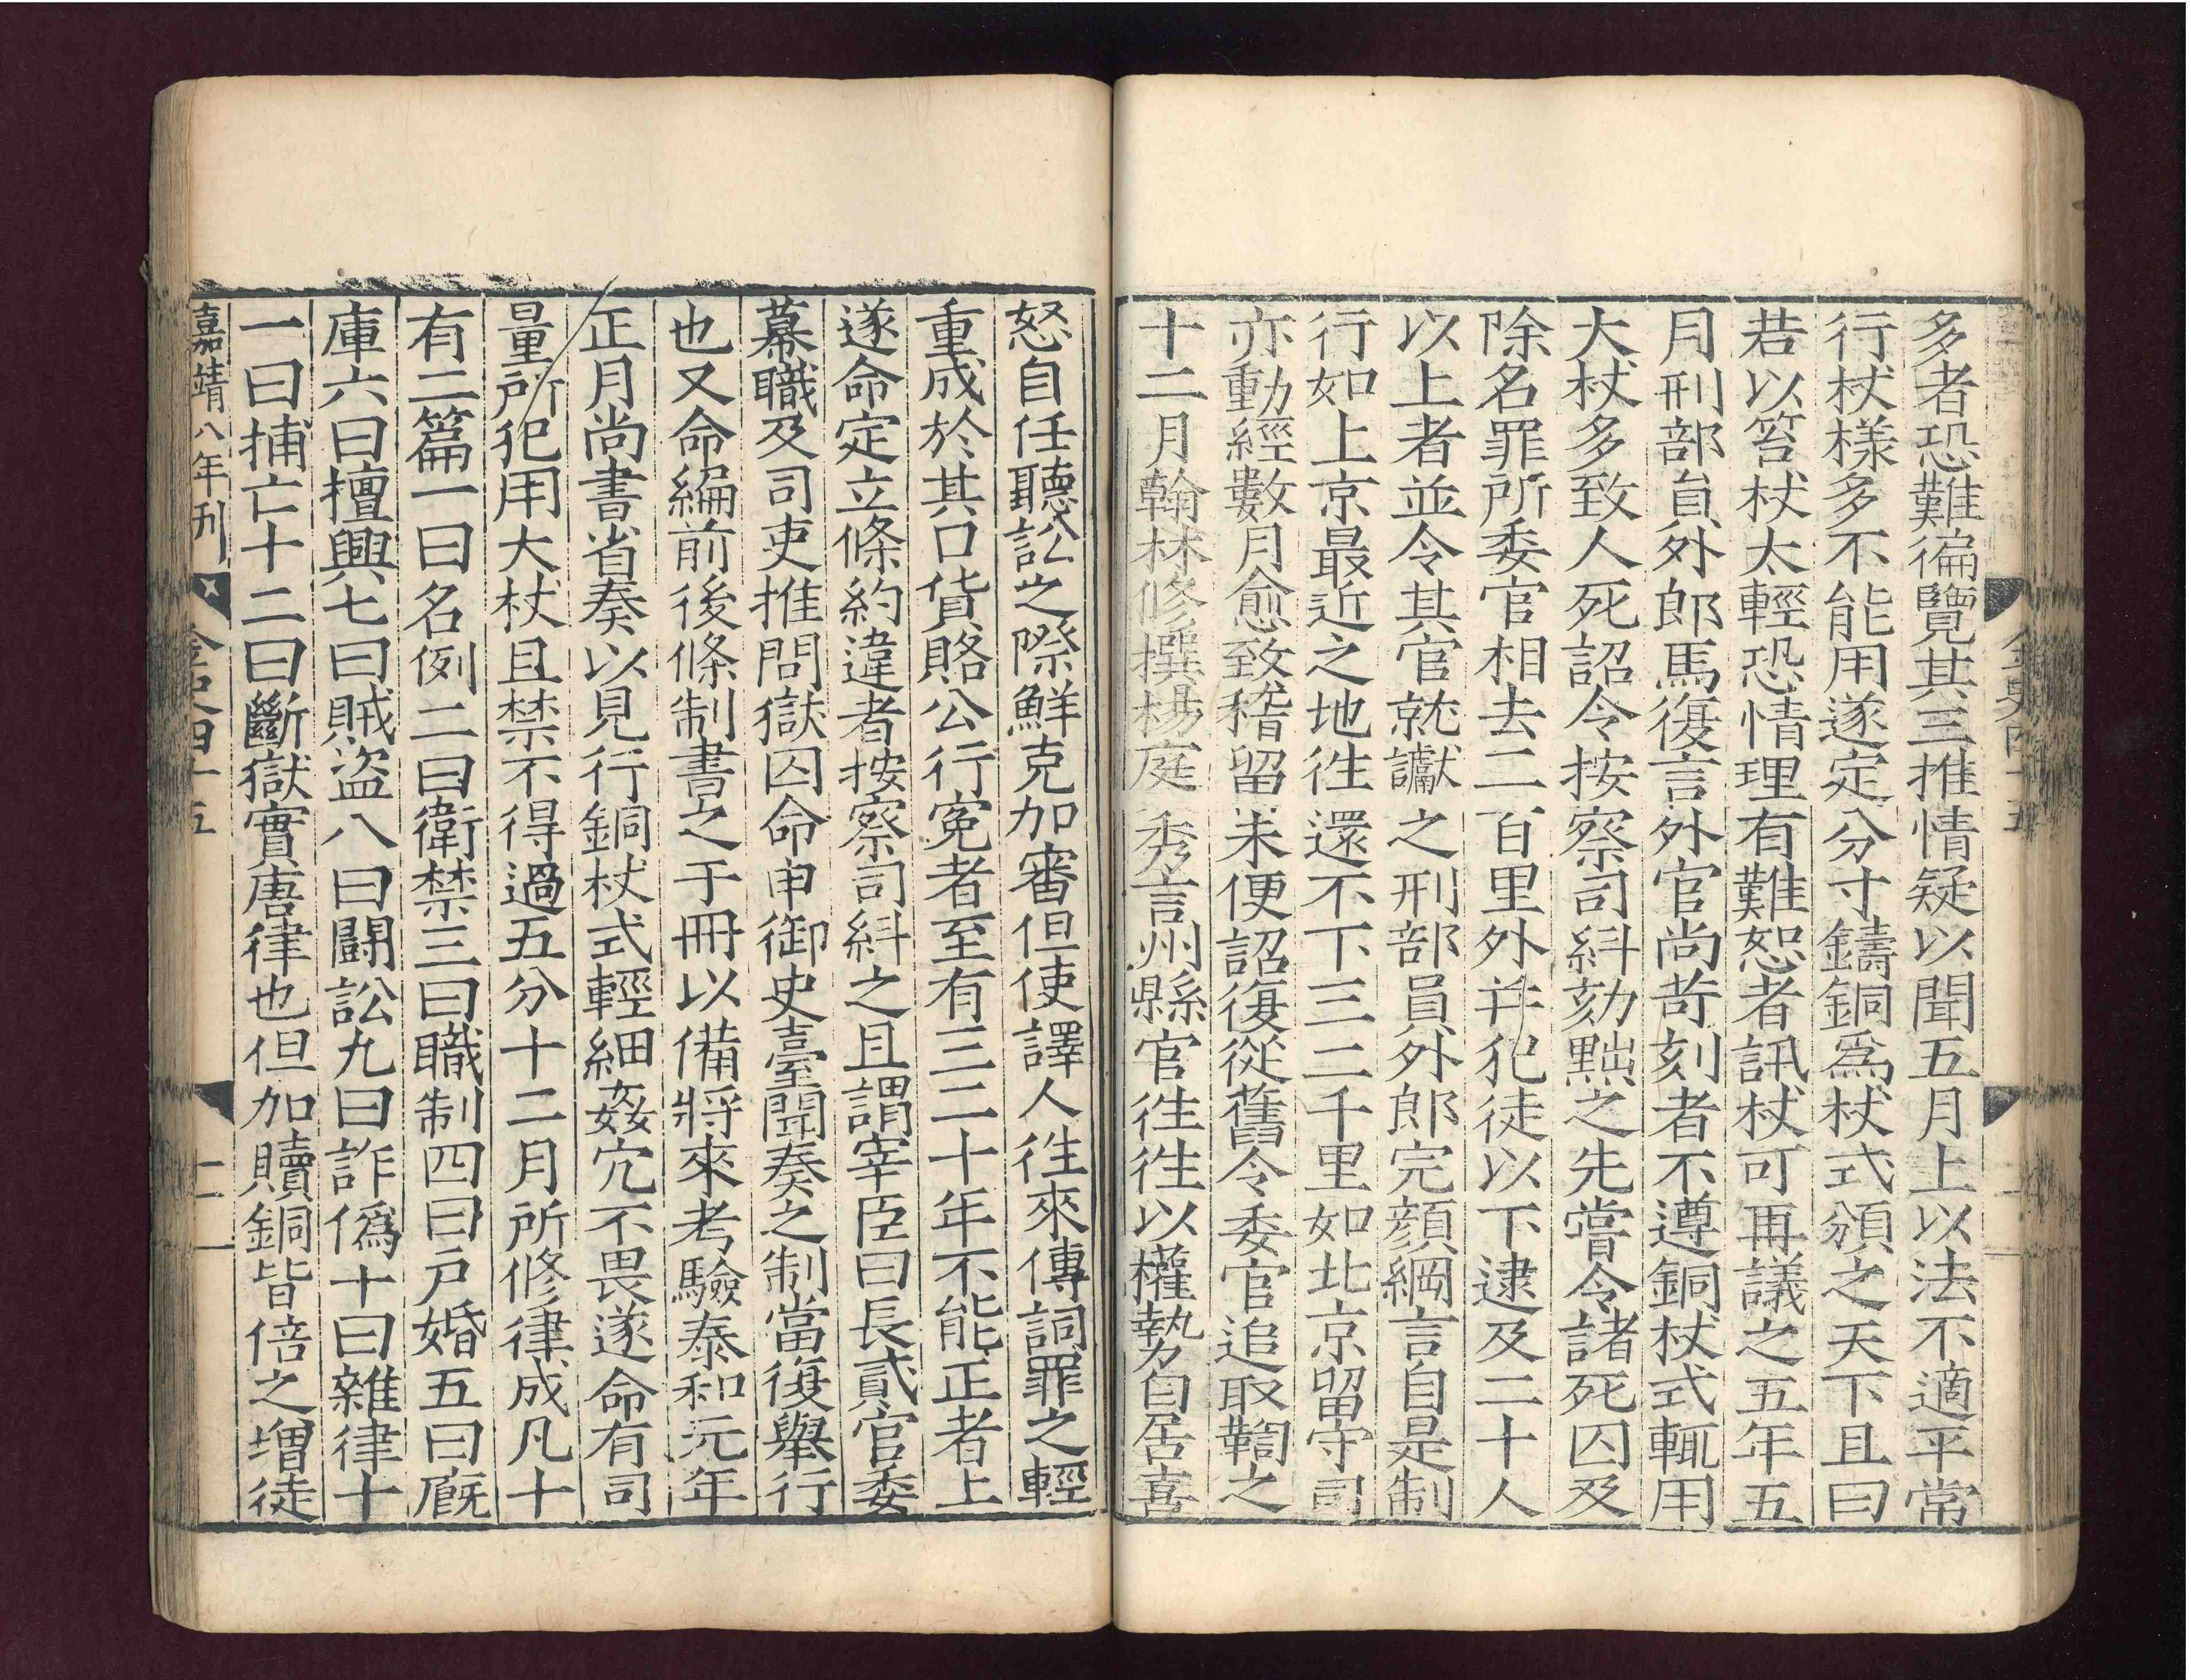 多者恐難徧覽其三推情疑以聞五月上以法不適平常
行杖樣多不能用遂定分寸鑄銅爲杖式頒之天下且曰
若以笞杖太輕恐情理有難恕者訊杖可再議之五年五
月刑部員外郎馬復言外官尚苛刻者不遵銅杖式輒用
大杖多致人死詔令按察司糾劾黜之先嘗令諸死囚及
除名罪所委官相去二百里外并犯徒以下逮及二十人
以上者並令其官就讞之刑部員外郎完顏綱言自是制
行如上京最近之地徃還不下三二千里如北京留守司
亦動經數月愈致稽留未便詔復從舊令委官追取鞫之
十二月翰林修撰楊庭秀言州縣官徃徃以權勢自居喜
怒自任聽訟之際鮮克加審但使譯人徃來傳詞罪之輕
重成於其口貨賂公行冤者至有三二十年不能正者上
遂命定立條約違者按察司糾之且謂宰臣曰長貳官委
幕職及司吏推問獄囚命申御史臺聞奏之制當復舉行
也又命編前後條制書之于冊以備將來考驗泰和元年
正月尚書省奏以見行銅杖式輕細姦宄不畏遂命有司
量所犯用大杖且禁不得過五分十二月所修律成凡十
有二篇一曰名例二曰衛禁三曰職制四曰戶婚五曰廐
庫六曰擅興七曰賊盜八曰鬭訟九曰詐僞十曰雜律十
一曰捕亡十二曰斷獄實唐律也但加贖銅皆倍之增徒
嘉靖八年刊 金史四十五 十一